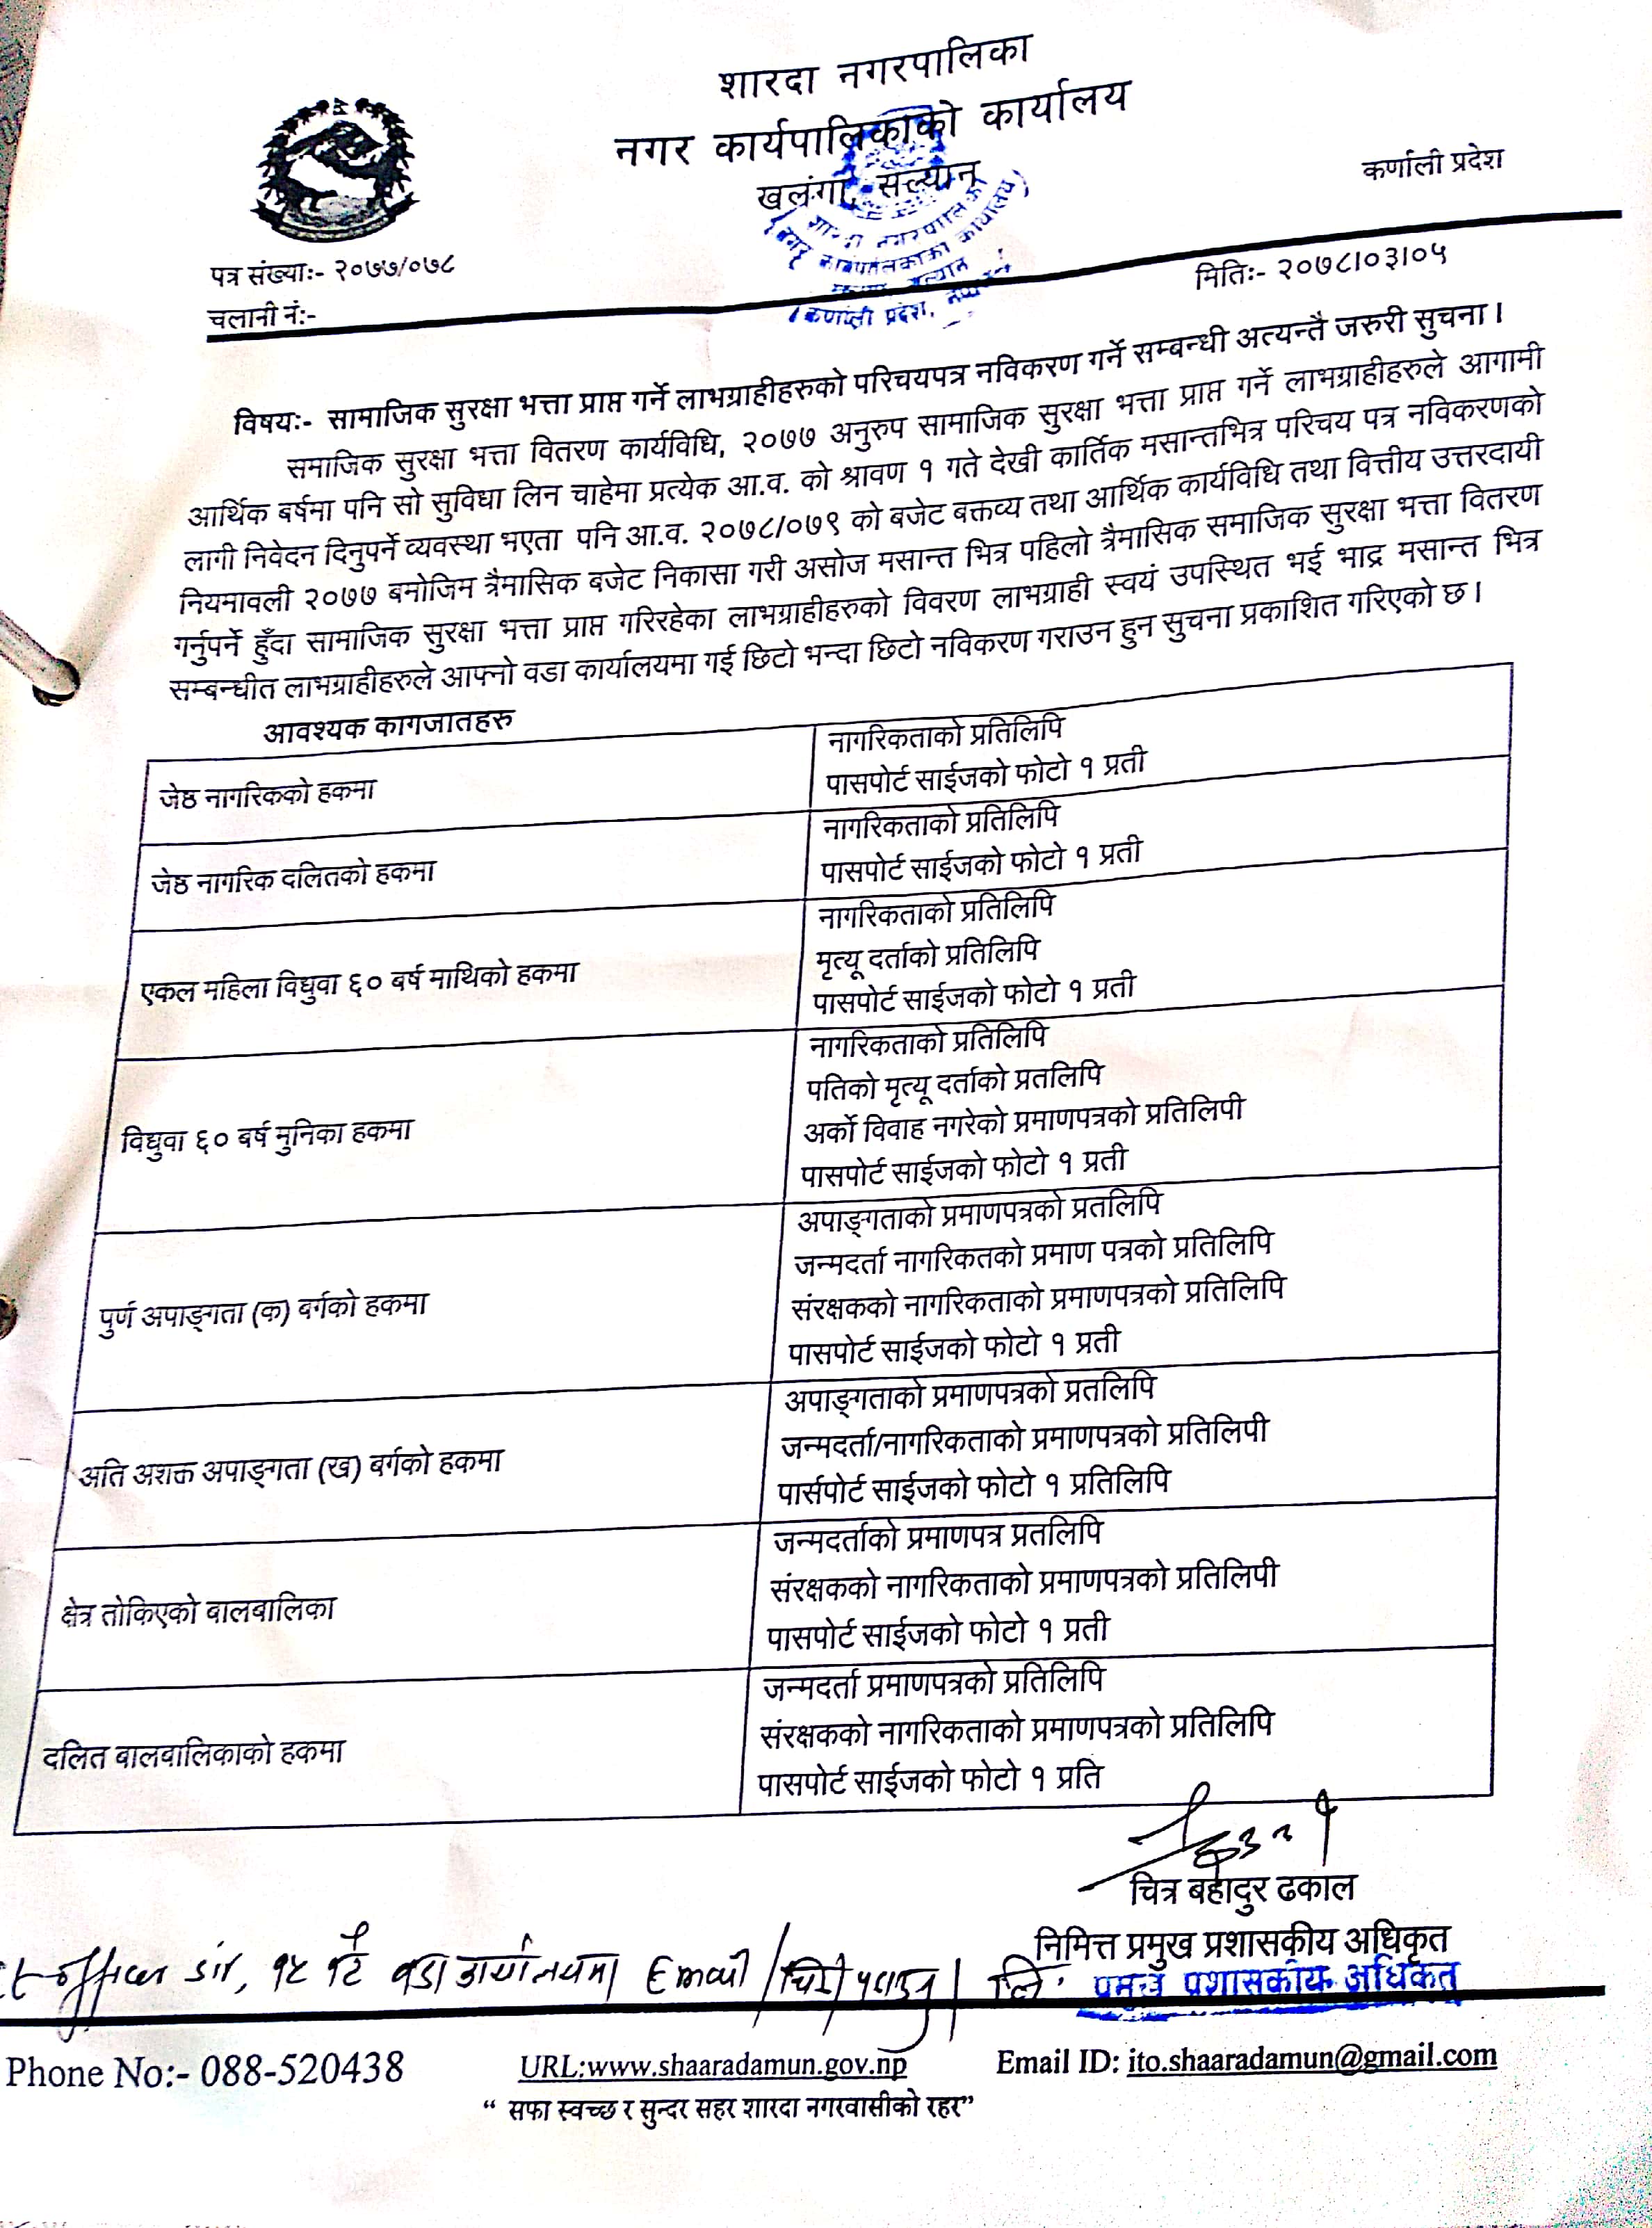 शारदा नगरपालिका
नगर कार्यपालिकाको कार्यालय
खलंगा, सल्यान
कर्णाली प्रदेश
पत्र संख्याः- २०७७/०७८
मितिः- २०७८।०३।०५
चलानी नं:-
विषयः- सामाजिक सुरक्षा भत्ता प्राप्त गर्ने लाभग्राहीहरुको परिचयपत्र नविकरण गर्ने सम्बन्धी अत्यन्तै जरुरी सुचना ।
समाजिक सुरक्षा भत्ता वितरण कार्यविधि, २०७७ अनुरुप सामाजिक सुरक्षा भत्ता प्राप्त गर्ने लाभग्राहीहरुले आगामी
आर्थिक बर्षमा पनि सो सुविधा लिन चाहेमा प्रत्येक आ.व. को श्रावण १ गते देखी कार्तिक मसान्तभित्र परिचय पत्र नविकरणको
लागी निवेदन दिनुपर्ने व्यवस्था भएता पनि आ.व. २०७८/०७९ को बजेट बक्तव्य तथा आर्थिक कार्यविधि तथा वित्तीय उत्तरदायी
नियमावली २०७७ बमोजिम त्रैमासिक बजेट निकासा गरी असोज मसान्त भित्र पहिलो त्रैमासिक समाजिक सुरक्षा भत्ता वितरण
गर्नुपर्ने हुँदा सामाजिक सुरक्षा भत्ता प्राप्त गरिरहेका लाभग्राहीहरुको विवरण लाभग्राही स्वयं उपस्थित भई भाद्र मसान्त भित्र
सम्बन्धीत लाभग्राहीहरुले आफ्नो वडा कार्यालयमा गई छिटो भन्दा छिटो नविकरण गराउन हुन सुचना प्रकाशित गरिएको छ ।
आवश्यक कागजातहरु
जेष्ठ नागरिकको हकमा
नागरिकताको प्रतिलिपि
पासपोर्ट साईजको फोटो १ प्रती
जेष्ठ नागरिक दलितको हकमा
नागरिकताको प्रतिलिपि
पासपोर्ट साईजको फोटो १ प्रती
एकल महिला विधुवा ६० बर्ष माथिको हकमा
नागरिकताको प्रतिलिपि
मृत्यू दर्ताको प्रतिलिपि
पासपोर्ट साईजको फोटो १ प्रती
विधुवा ६० बर्ष मुनिका हकमा
नागरिकताको प्रतिलिपि
पतिको मृत्यू दर्ताको प्रतलिपि
अर्को विवाह नगरेको प्रमाणपत्रको प्रतिलिपी
पासपोर्ट साईजको फोटो १ प्रती
पुर्ण अपाङ्गता (क) बर्गको हकमा
अपाङ्गताको प्रमाणपत्रको प्रतलिपि
जन्मदर्ता नागरिकतको प्रमाण पत्रको प्रतिलिपि
संरक्षकको नागरिकताको प्रमाणपत्रको प्रतिलिपि
पासपोर्ट साईजको फोटो १ प्रती
अति अशक्त अपाङ्गता (ख) बर्गको हकमा
अपाङ्गताको प्रमाणपत्रको प्रतलिपि
जन्मदर्ता/नागरिकताको प्रमाणपत्रको प्रतिलिपी
पार्सपोर्ट साईजको फोटो १ प्रतिलिपि
क्षेत्र तोकिएको बालबालिका
जन्मदर्ताको प्रमाणपत्र प्रतलिपि
संरक्षकको नागरिकताको प्रमाणपत्रको प्रतिलिपी
पासपोर्ट साईजको फोटो १ प्रती
दलित बालवालिकाको हकमा
जन्मदर्ता प्रमाणपत्रको प्रतिलिपि
संरक्षकको नागरिकताको प्रमाणपत्रको प्रतिलिपि
पासपोर्ट साईजको फोटो १ प्रति
चित्र बहादुर ढकाल
निमित्त प्रमुख प्रशासकीय अधिकृत
officer sir, १५ वटै वडा कार्यालयमा Email
प्रमुख प्रशासकीय अधिकृत
Phone No:- 088-520438
URL:www.shaaradamun.gov.np
Email ID: ito.shaaradamun@gmail.com
“ सफा स्वच्छ र सुन्दर सहर शारदा नगरवासीको रहर”